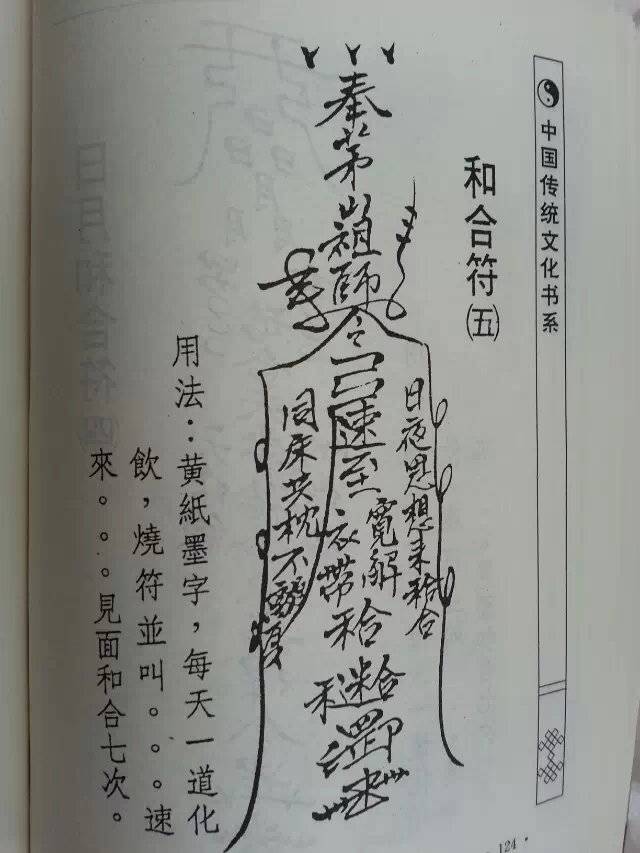 中国传统文化书系
和合符㈤
奉茅山祖師
令
速至
日夜思想来和合
寬解
衣帶
和合
同床共枕不
用法：黄紙墨字，每天一道化
飲，燒符並叫。。。速
來。。。見面和合七次。
124